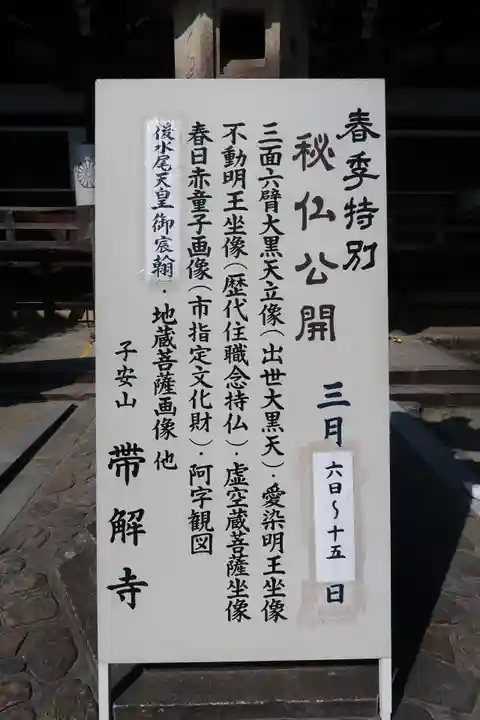 春季特別
秘仏公開
三月六日〜十五日
三面六臂大黒天立像(出世大黒天)・愛染明王坐像
不動明王坐像(歴代住職念持仏)・虚空蔵菩薩坐像
春日赤童子画像(市指定文化財)・阿字観図
後水尾天皇御宸翰・地蔵菩薩画像他
子安山
帯解寺